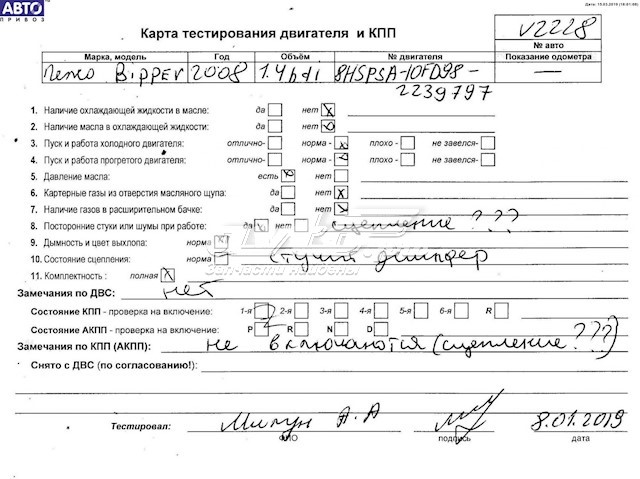 АВТО
ПРИВОЗ
Дата: 15.03.2019 (16:01:08)
Карта тестирования двигателя и КПП
V2228
№ авто
Марка, модель Год Объём № двигателя Показание одометра
Bipper 2008 1.4hdi 8HSPSA-10FD98- —
2239797
1. Наличие охлаждающей жидкости в масле: да нет x
2. Наличие масла в охлаждающей жидкости: да нет
3. Пуск и работа холодного двигателя: отлично- норма - плохо - не завелся-
4. Пуск и работа прогретого двигателя: отлично- норма - плохо - не завелся-
5. Давление масла: есть нет
6. Картерные газы из отверстия масляного щупа: да нет x
7. Наличие газов в расширительном бачке: да нет x
8. Посторонние стуки или шумы при работе: да нет сцепление ???
9. Дымность и цвет выхлопа: норма
10. Состояние сцепления: норма стучит демпфер
11. Комплектность : полная x
Замечания по ДВС: нет
Состояние КПП - проверка на включение: 1-я 2-я 3-я 4-я 5-я 6-я R
Состояние АКПП - проверка на включение: P R N D
Замечания по КПП (АКПП): не включаются (сцепление???)
Снято с ДВС (по согласованию!):
запчасти найдены
Тестировал: А.А 8.01.2019
ФИО подпись дата